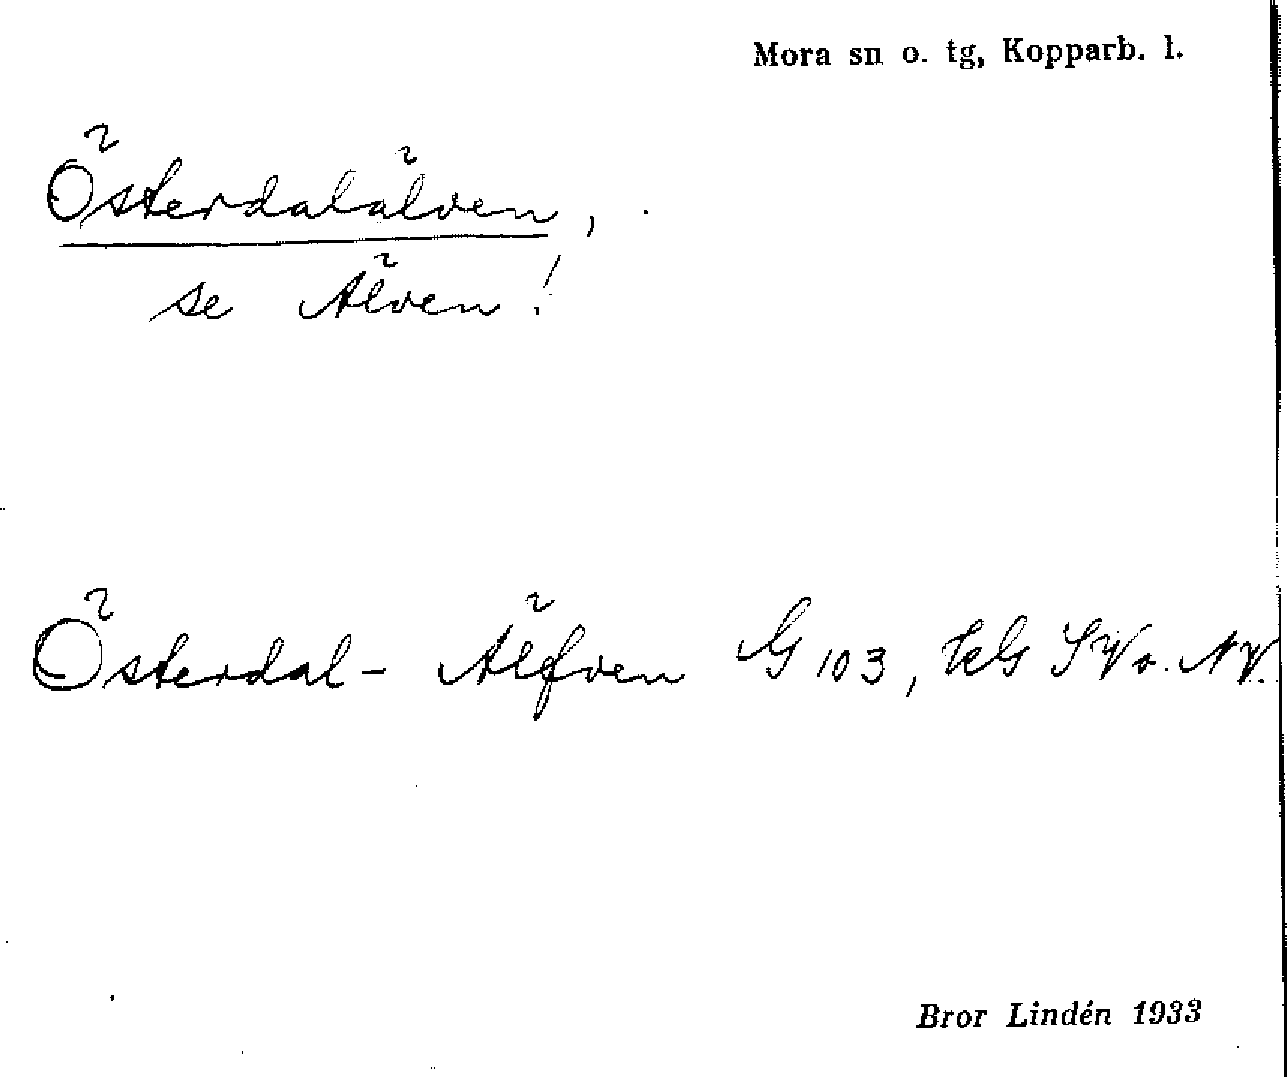 Mora sn o. tg, Kopparb. l.
Österdalälven,
se Älven!
Österdal-Älfven G 103, SV o. NV.
Bror Lindén 1933